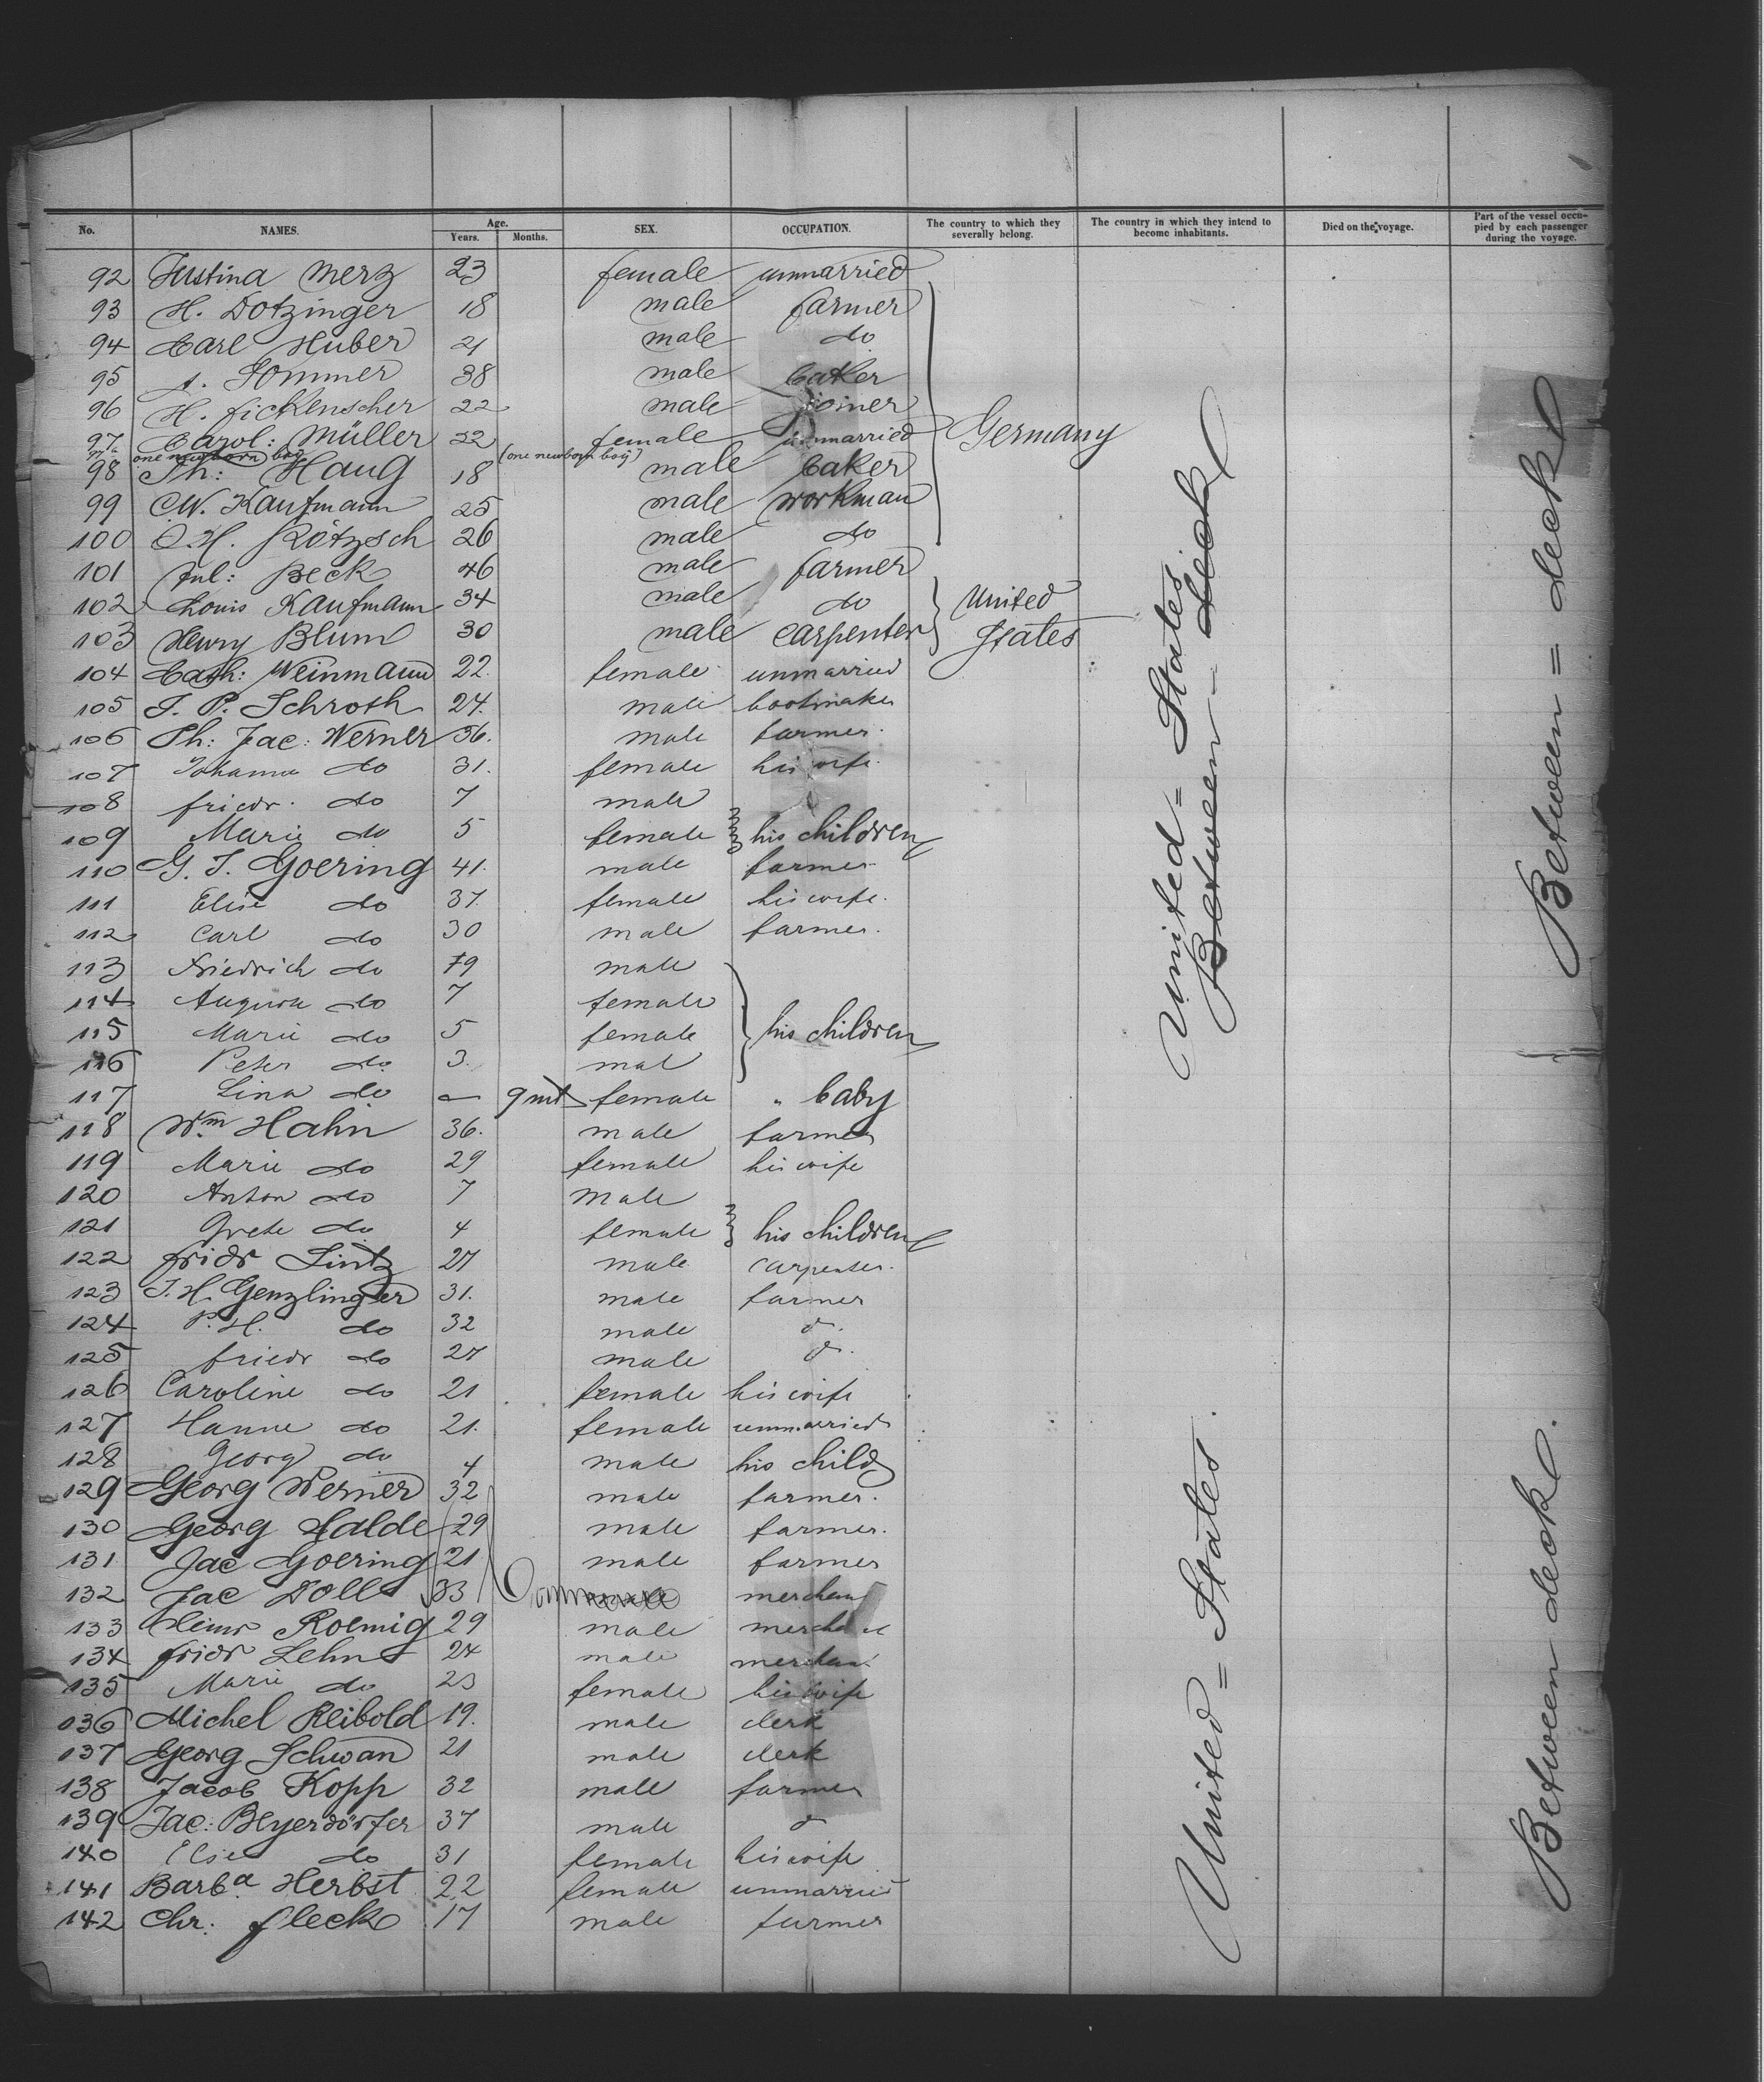 No. NAMES. Age. Years. Months. SEX. OCCUPATION. The country to which they severally belong. The country in which they intend to become inhabitants. Died on the voyage. Part of the vessel occupied by each passenger during the voyage.
92 Justina Merz 23 female unmarried
93 H. Dotzinger 18 male farmer
94 Carl Huber 21 male do
95 A. Sommer 38 male baker
96 H. Fickenscher 22 male joiner
97 Carol: Müller 22 female unmarried Germany
97a one newborn boy (one newborn boy)
98 Th: Haug 18 male baker
99 W. Kaufmann 25 male workman
100 O.H. Rötzsch 26 male do
101 Jul: Beck 46 male farmer
102 Louis Kaufmann 34 male do United
103 Henry Blum 30 male carpenter States
104 Cath: Weinmann 22. female unmarried
105 J. P. Schroth 24. male bootmaker
106 Ph: Jac: Werner 36. male farmer.
107 Johanna do 31. female his wife.
108 friedr. do 7 male
109 Marie do 5 female his children
110 G. J. Goering 41. male farmer
111 Elise do 37. female his wife.
112 Carl do 30 male farmer.
113 Friedrich do 79 male
114 Augusta do 7 female
115 Marie do 5 female his children
116 Peter do 3. mal
117 Lina do — 9 mt female " baby
118 Wm. Hahn 36. male farmer
119 Marie do 29 female his wife
120 Anton do 7 male
121 Grete do 4 female his children
122 fridr Lintz 27 male carpenter.
123 J. H. Genzlinger 31. male farmer
124 P. H. do 32 male d.
125 friedr do 27 male d.
126 Caroline do 21 female his wife
127 Hanne do 21. female unmarried
128 Georg do 4 male his child
129 Georg Werner 32 male farmer.
130 Georg Halde 29 male farmer.
131 Jac Goering 21 male farmer
132 Jac Doll 33 merchant
133 Heinr Roemig 29 male merchant
134 fridr Lehn 24 male merchant
135 Marie do 23 female his wife
136 Michel Reibold 19. male clerk
137 Georg Schwan 21 male clerk
138 Jacob Kopp 32 male farmer
139 Jac: Beyerdörfer 37 male d
140 Elise do 31 female his wife
141 Barba. Herbst 22 female unmarried
142 Chr. fleck 17 male farmer
United = States
Between - deck
United = States
Between = deck
Between deck.